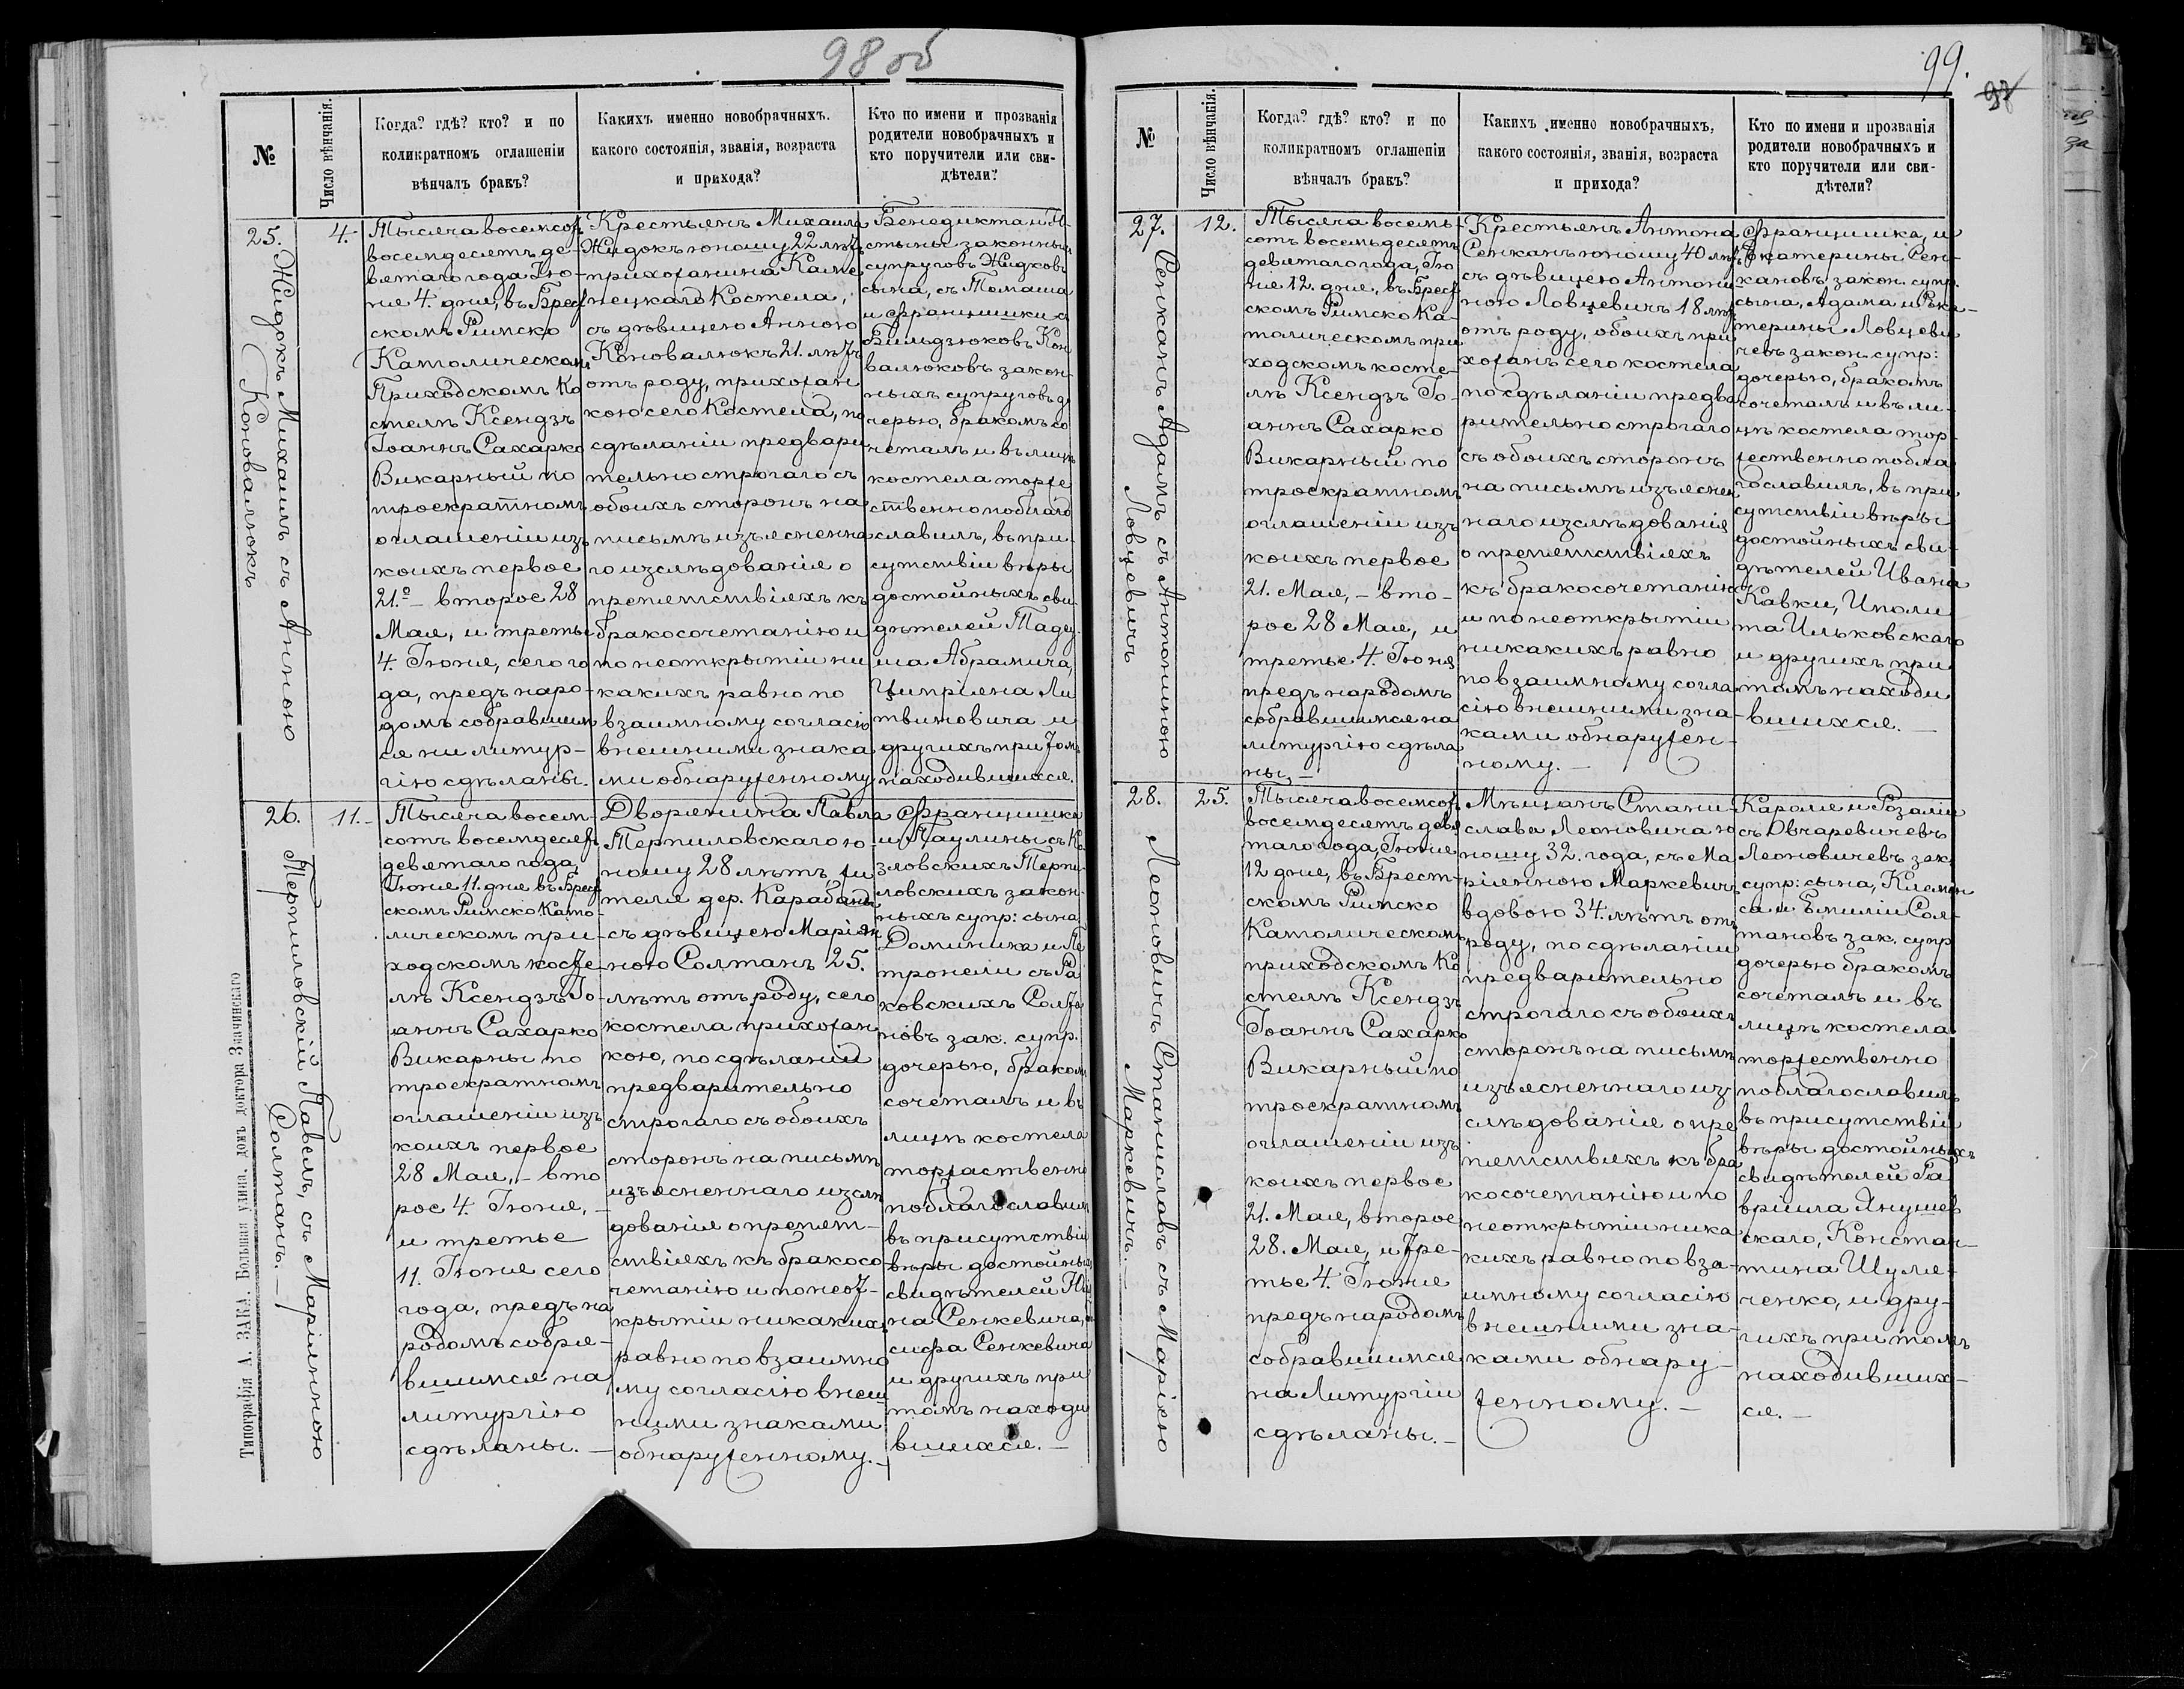 98 об
№
Число вѣнчанія.
Когда? гдѣ? кто? и по
коликратномъ оглашеніи
вѣнчалъ бракъ?
Какихъ именно новобрачныхъ.
какого состоянія, званія, возраста
и прихода?
Кто по имени и прозванія
родители новобрачныхъ и
кто поручители или сви-
дѣтели?
25.
Жидокъ Михаилъ съ Анною
Коновалюкъ
4.
Тысяча восемсот
восемдесятъ де-
вятаго года Iю-
ня 4. дня, въ Брест
скомъ Римско
Католическом
Приходскомъ Ко
стелѣ Ксендзъ
Іоаннъ Сахарко
Викарный по
троекратномъ
оглашеніи изъ
коихъ первое
21.º – второе 28
Мая, и третье
4. Іюня, сего го
да, предъ наро-
домъ собравшим
ся ни литур-
гію сдѣланы.
Крестьянъ Михаила
Жидокъ юношу 22 лѣтъ
прихожанина Каме
нецкаго Костела,
съ дѣвицею Анною
Коновалюкъ 21. лѣтъ
отъ роду, прихожан
кою сего Костела, по
сдѣланіи предвари
тельно строгаго съ
обоихъ сторонъ на
письмѣ изъясненна
го изслѣдованія о
препятствіяхъ къ
бракосочетанію и
по неоткрытіи ни
какихъ равно по
взаимному согласію
внешними знака
ми обнаруженному
Бенедикта и Ю-
стыны законныхъ
супруговъ Жидковъ
сына, съ Томаша
и Францишки съ
Бильдзюковъ Кон
валюковъ закон-
ныхъ супруговъ до
черью, бракомъ со
четалъ и въ лицѣ
костела торже
ственно поблаго
славилъ, въ при-
сутствіи вѣры
достойныхъ сви
дѣтелей Тадеу-
ша Абрамича,
Ципріяна Ли
твиновича и
другихъ при томъ
находившихся.
26.
Терпиловскій Павелъ, съ Маріянною
Солтанъ. –
11. –
Тысяча восем-
сотъ восемдесят
девятаго года,
Іюня 11. дня въ Брест
скомъ Римско Като-
лическомъ при-
ходскомъ косте-
лѣ Ксендзъ Іо-
аннъ Сахарко
Викарны по
троекратномъ
оглашеніи изъ
коихъ первое
28 Мая, – вто
рое 4. Іюня, –
и третье
11. Іюня сего
года, предъ на
родомъ собра-
вшимся на
литургію
сдѣланы. –
Дворянина Павла
Терпиловскаго ю-
ношу 28 лѣтъ жи
теля дер. Карабаны
съ дѣвицею Маріян
ною Солтанъ 25.
лѣтъ отъ роду, сего
костела прихожан
кою, по сдѣланіи
предварительно
строгаго съ обоихъ
сторонъ на письмѣ
изъясненнаго изслѣ
дованія о препят-
ствіяхъ къ бракосо
четанію и по неот-
крытіи никакихъ
равно по взаимно
му согласію внеш
ними знаками
обнаруженному. –
Францишка
и Паулины съ Ко
зловскихъ Терпи-
ловскихъ закон-
ныхъ супр: сына
Доминика и Пе
тронели съ Ра
ковскихъ Солта
новъ зак. супр.
дочерью, браком
сочеталъ и въ
лицѣ костела
торжаственно
поблагославилъ
въ присутствіи
вѣры достойных
свидѣтелей
на Сенкевича,
сифа Сенкевича
и другихъ при
томъ находи
вшихся. –
Типографія А. ЗАКА. Большая улица, домъ доктора Значинскаго
99.
97
№
Число вѣнчанія.
Когда? гдѣ? кто? и по
коликратномъ оглашеніи
вѣнчалъ бракъ?
Какихъ именно новобрачныхъ,
какого состоянія, званія, возраста
и прихода?
Кто по имени и прозванія
родители новобрачныхъ и
кто поручители или сви-
дѣтели?
27.
Сенканъ Адамъ съ Антониною
Ловцевичъ
12.
Тысяча восемь-
сотъ восемьдесятъ
девятаго года, Ію
ня 12. дня, въ Брест
скомъ Римско Ка-
толическомъ при
ходскомъ косте-
лѣ Ксендзъ Іо-
аннъ Сахарко
Викарный по
троекратномъ
оглашеніи изъ
коихъ первое
21. Мая, – вто-
рое 28 Мая, и
третье 4. Іюня
предъ народомъ
собравшимся на
литургію сдѣла
ны, –
Крестьянъ Антона
Сенканъ юношу 40 лѣтъ
съ дѣвицею Антони
ною Ловцевичъ 18 лѣтъ
отъ роду, обоихъ при
хожанъ сего костела
по сдѣланіи предва
рительно строгаго
съ обоихъ сторонъ
на письмѣ изъяснен
наго изслѣдованія
о препятствіяхъ
къ бракосочетанію
и по неоткрытіи
никакихъ равно
по взаимному согла
сію внешними зна-
ками обнаружен-
ному. –
Францишка, и
Екатерины Сен-
кановъ закон. супр.
сына, Адама и Ека-
терины Ловцеви
чевъ закон. супр:
дочерью, бракомъ
сочеталъ и въ ли-
цѣ костела тор-
жественно побла
гославилъ, въ при
сутствіи вѣры
достойныхъ сви-
дѣтелей Ивана
Кавки, Иполи
та Ильковскаго
и другихъ при
томъ находи
вшихся. –
28.
Леоновичъ Станиславъ съ Маріею
Маркевичъ. –
25.
Тысяча восемсот
восемдесятъ девя
таго года, Іюня
12 дня, въ Брест-
скомъ Римско
Католическомъ
приходскомъ Ко
стелѣ Ксендзъ
Іоаннъ Сахарко
Викарный по
троекратномъ
оглашеніи изъ
коихъ первое
21. Мая, второе
28. Мая, и тре-
тье 4. Іюня
предъ народомъ
собравшимся
на Литургіи
сдѣланы. –
Мѣщанъ Стани-
слава Леоновича ю
ношу 32. года, съ Ма
ріянною Маркевичъ
вдовою 34. лѣтъ отъ
роду, по сдѣланіи
предварительно
строгаго съ обоихъ
сторонъ на письмѣ
изъясненнаго из
слѣдованія о пре
пятствіяхъ къ бра
косочетанію и по
неоткрытіи ника
кихъ равно по вза-
имному согласію
внешними зна-
ками обнару-
женному. –
Кароля и Розаліи
съ Овчаревичевъ
Леоновичевъ зак.
супр: сына, Клемен
са и Емиліи Сол-
тановъ зак. супр
дочерью бракомъ
сочеталъ и въ
лицѣ костела
торжественно
поблагославилъ
въ присутствіи
вѣры достойныхъ
свидѣтелей Га
вріила Янушев
скаго, Констан-
тина Шуля-
ченко, и дру-
гихъ при томъ
находивших-
ся. –